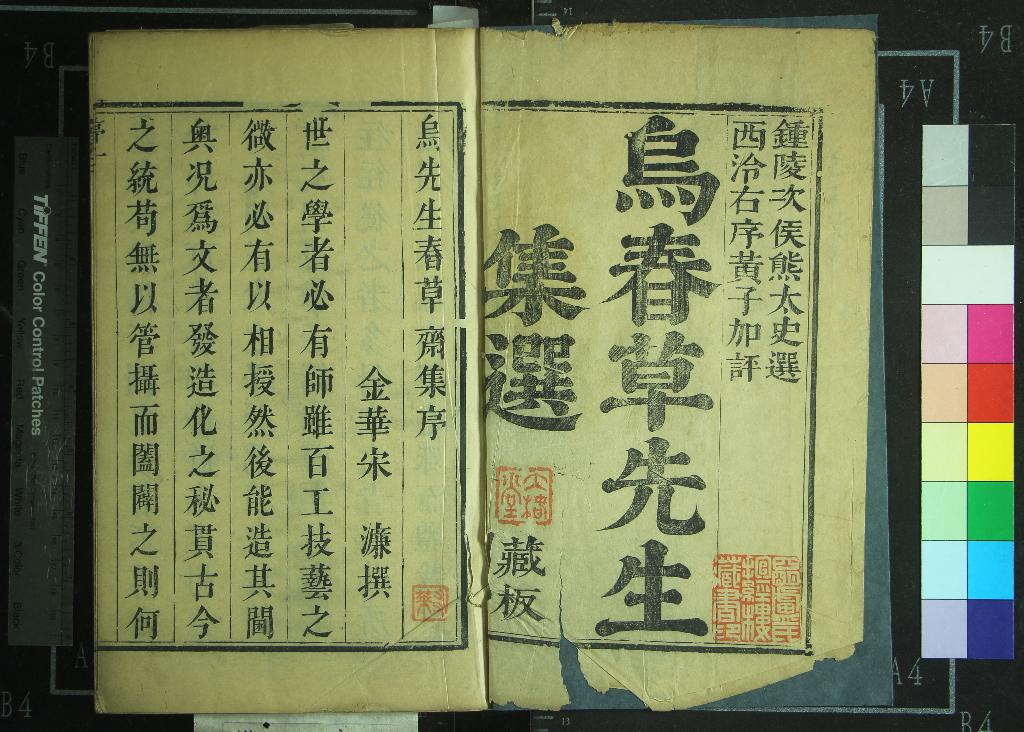 鍾陵次侯熊太史選
西泠右序黃子加評
烏春草先生
集選
藏板
烏先生春草齋集序
金華宋濂撰
世之學者必有師雖百工技藝之
微亦必有以相授然後能造其閫
奥况爲文者發造化之秘貫古今
之統苟無以管攝而闔闢之則何
TIFFEN Color Control Patches
Blue
Cyan
Green
Yellow
Red
Magenta
White
3/Color
Black
B4
A4
B4
A4
A
B4
B4
14
13